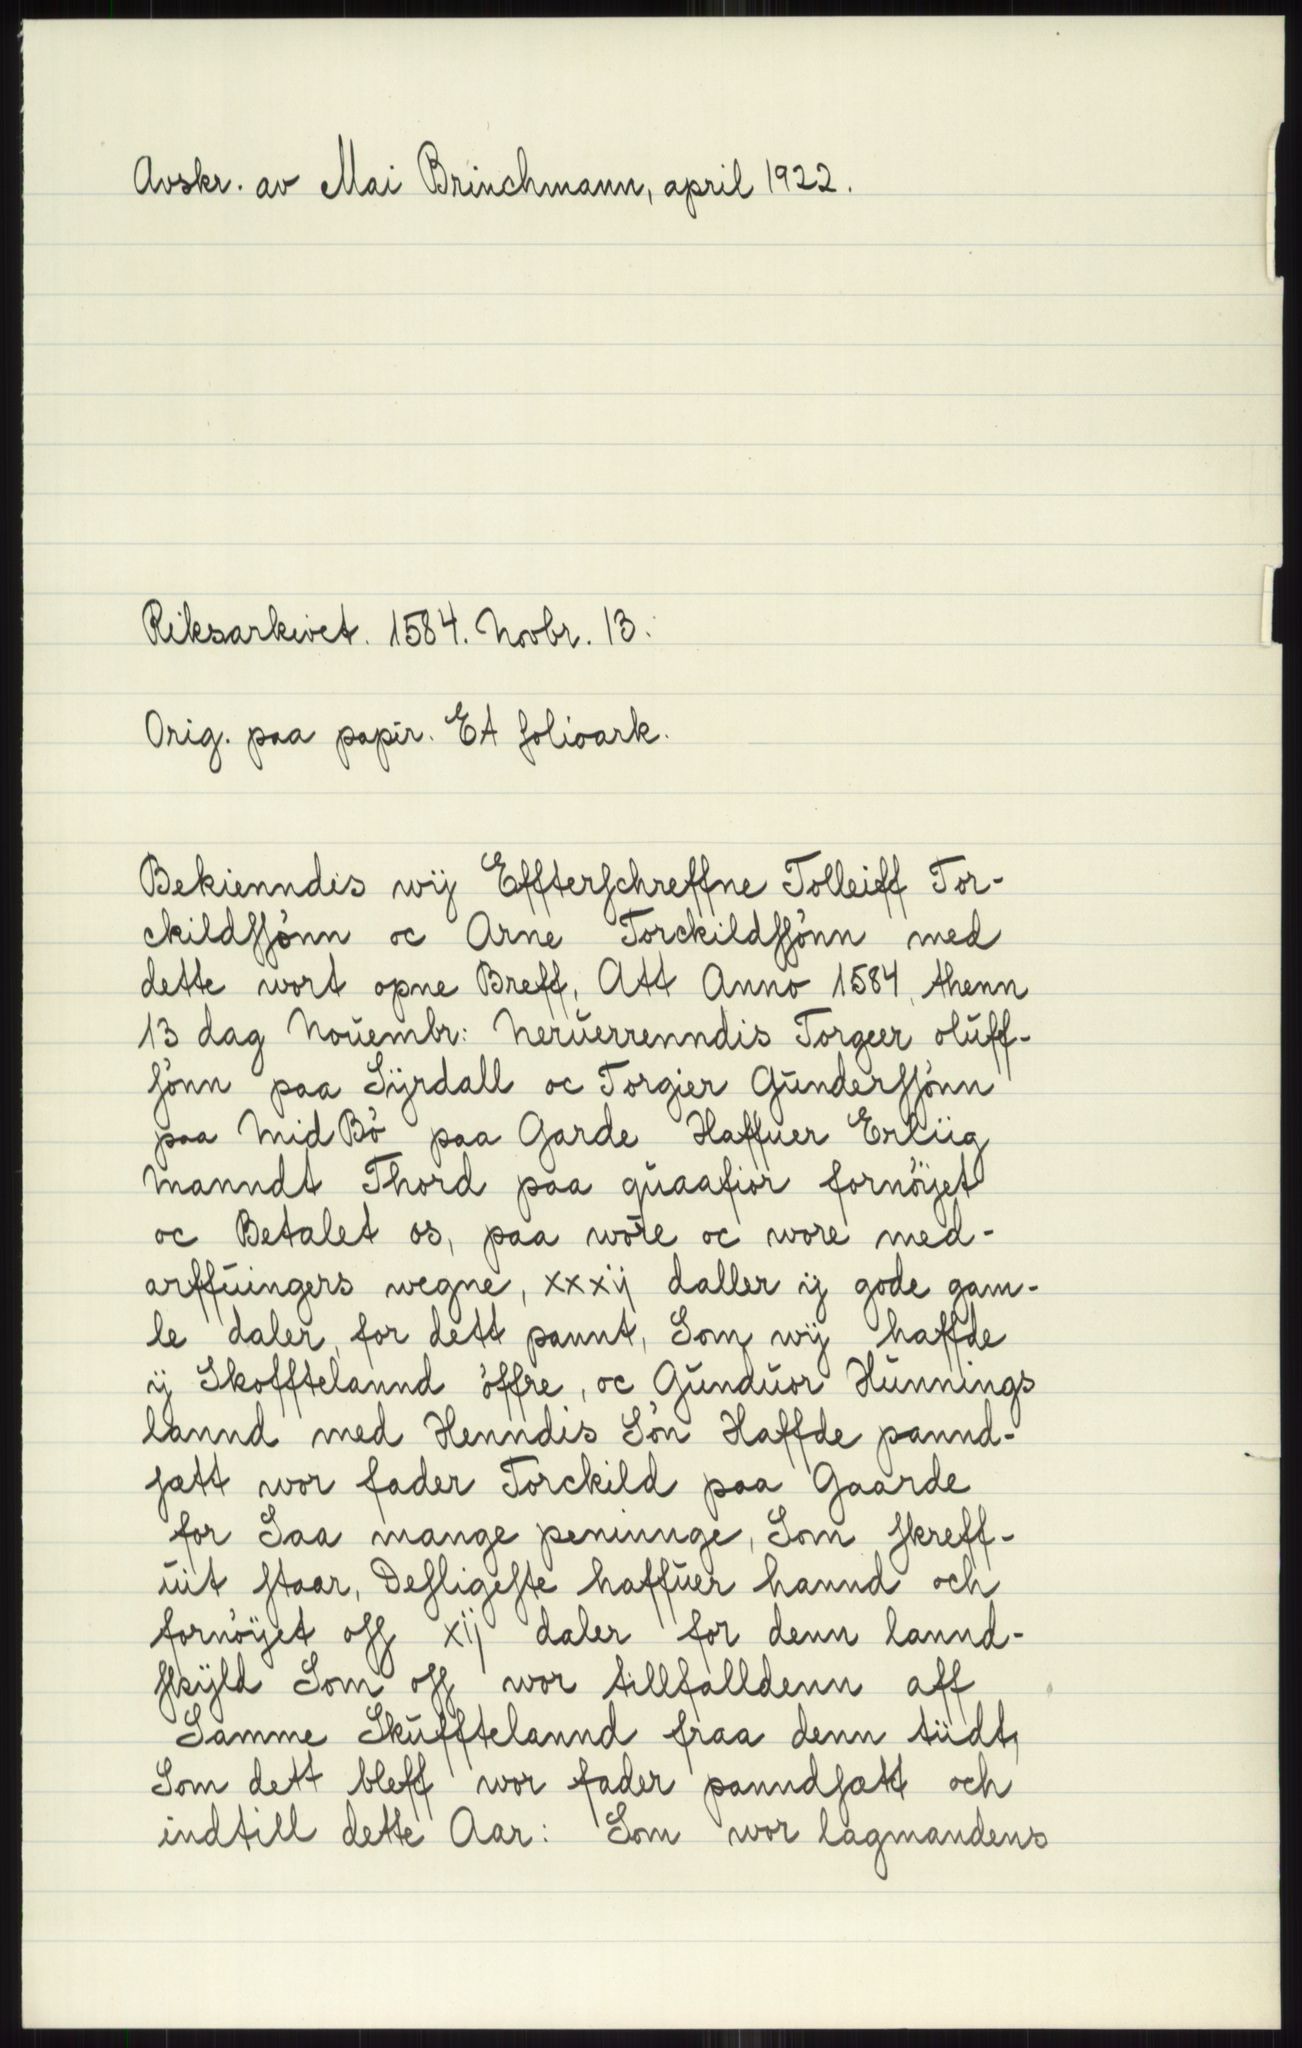 Avskr. av Mai Brinchmann, april 1922.
Riksarkivet. 1584. Novbr. 13.
Orig. paa papir. Et folioark.
Bekienndis wij Effterſchreffne Tolleiff Tor-
ckildſſönn oc Arne Torckildſſönn med
dette wort opne Breff, Att Anno 1584, thenn
13 dag Nouembr: Neruerrenndis Torgeer oluff-
ſönn paa Sÿrdall oc Torgier Gunderſſönn
paa Mid Bö paa Garde Haffuer Erliig
Manndt Thord paa quaafior fornöÿet
oc Betalet os, paa wore oc wore med-
arffuingers wegne, xxxij daller ij gode gam-
le daler, for dett pannt, Som wij haffde
ij Skofftelannd öffre, oc Gunduor Hunnings
lannd med Henndis Sön Haffde pannd-
ſatt wor fader Torckild paa Gaarde
for Saa mange peninnge, Som ſkreff-
uit ſtaar, Deſligeſte haffuer hannd och
fornöÿet oſſ xij daler for denn lannd-
ſkÿld Som oſſ wor tillfalldenn aff
Samme Skufftelannd fraa denn tiidt,
Som dett bleff wor fader panndſatt och
indtill dette Aar: Som wor lagmandens